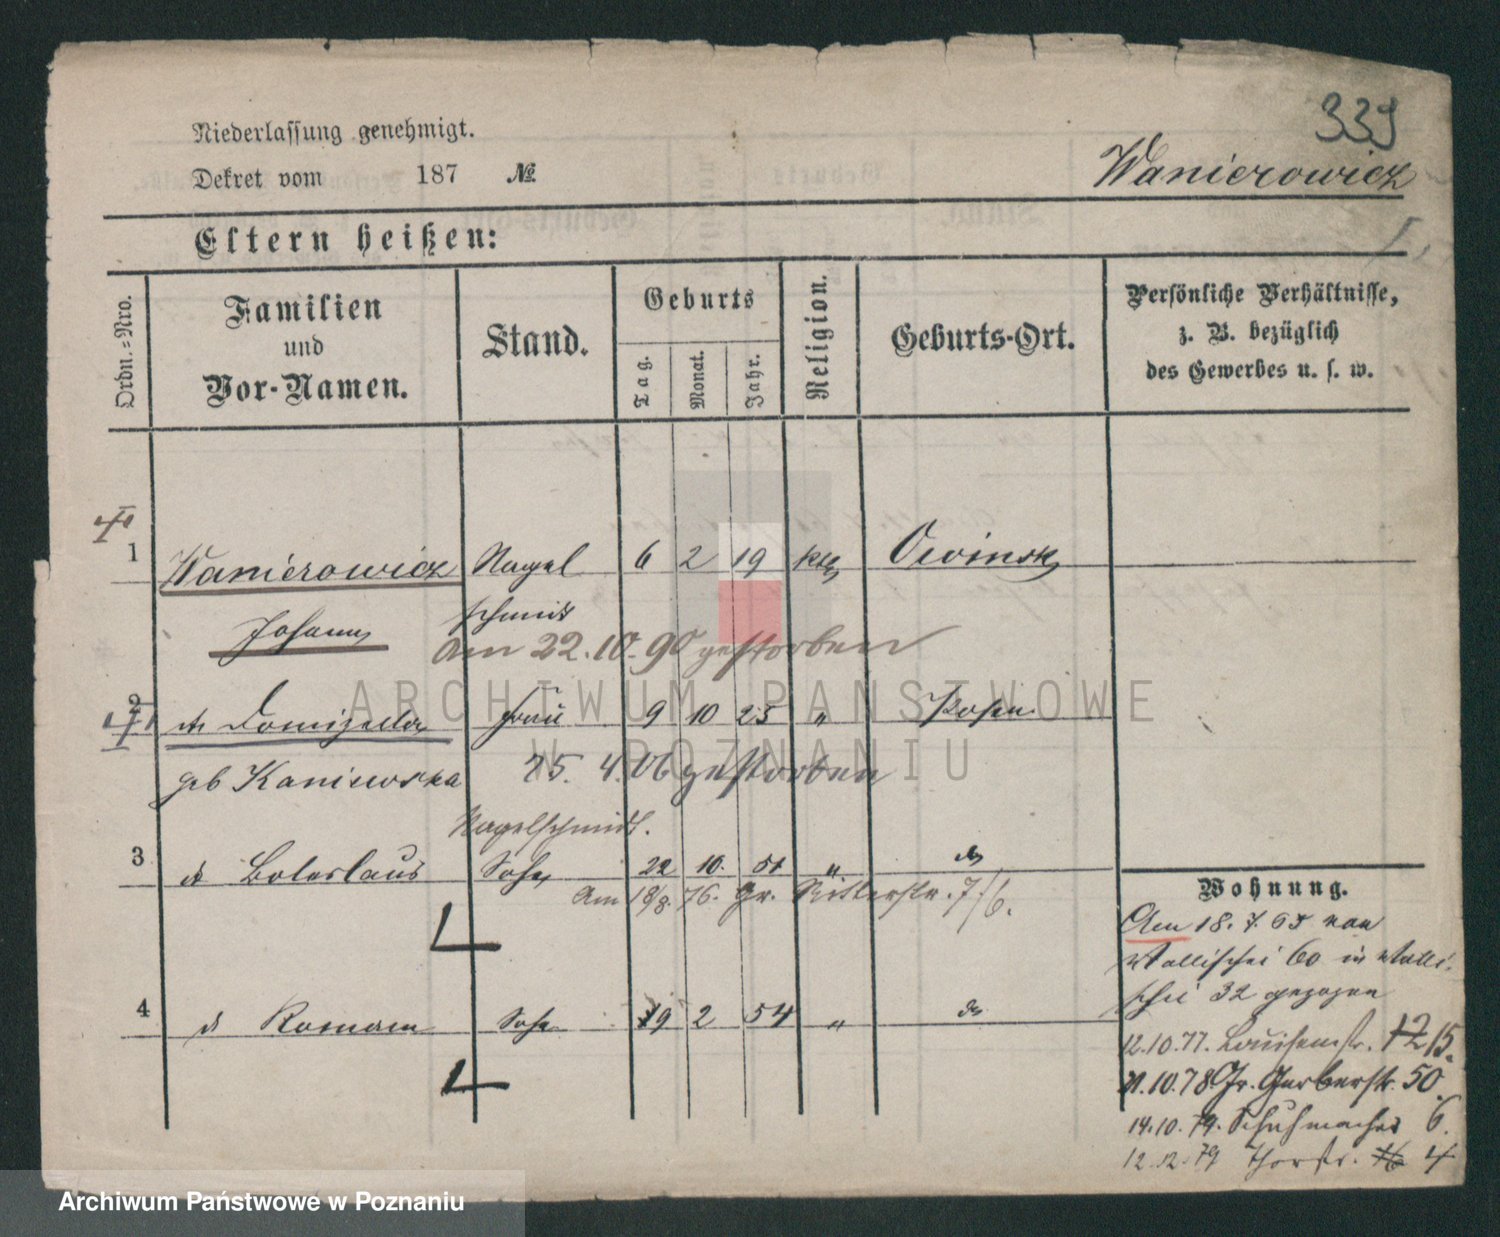 339
Niederlassung genehmigt.
Dekret vom 187 №
Wanierowicz
Eltern heißen:
Ordn.=Nro.
Familien
und
Vor-Namen.
Stand.
Geburts
Tag.
Monat.
Jahr.
Religion.
Geburts-Ort.
Persönliche Verhältnisse,
z. B. bezüglich
des Gewerbes u. s. w.
1 Wanierowicz Nagel 6 2 19 kth Owinsk
Johann schmidt
am 22.10.90 gestorben
2 Domizella Frau 9 10 25 " Posen
geb Kaniewska 25. 4. 06 gestorben
Nagelschmidt.
3 Boleslaus Sohn 22 10. 51 "
Am 18/8. 76. Gr. Ritterstr. 7/6.
4 Roman Sohn 19 2 54 "
Wohnung.
Am 18. 7. 65 von
Wallischei 60 in Walli-
schei 32 gezogen
12.10.77. Louisenstr. 12 15.
11.10.78 Gr. Gerberstr. 50.
14.10.79. Schuhmacher 6.
12.12.79 Thorstr. 4
ARCHIWUM PAŃSTWOWE
W POZNANIU
Archiwum Państwowe w Poznaniu